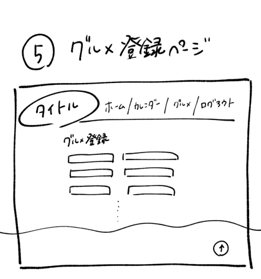 ⑤ グルメ登録ページ
タイトル ホーム/カレンダー/グルメ/ログアウト
グルメ登録